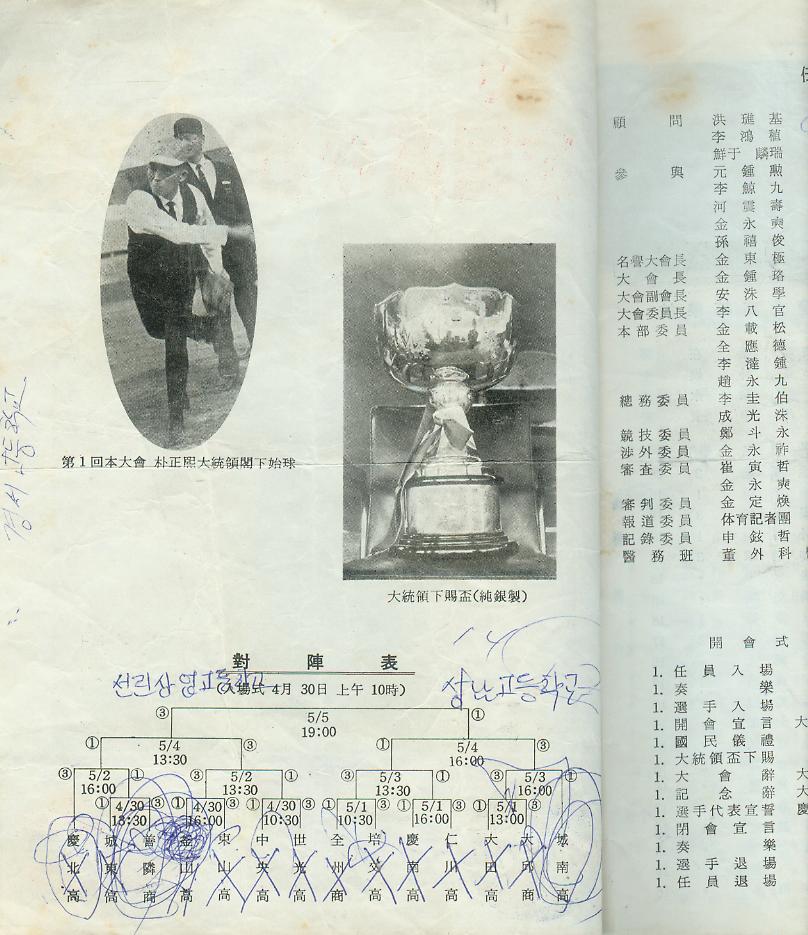 第1回本大會 朴正熙大統領閣下始球
大統領下賜盃(純銀製)
對陣表
선린상업고등학교
(入場式 4月 30日 上午 10時)
③ ①
5/5
19:00
① ③ ① ③
5/4 5/4
13:30 16:00
③ ① ③ ① ① ③ ③ ①
5/2 5/2 5/3 5/3
16:00 13:30 13:30 16:00
① ③ ① ③ ① ③ ① ③ ① ③ ① ③
4/30 4/30 4/30 5/1 5/1 5/1
13:30 16:00 10:30 10:30 16:00 13:00
慶北高
城東高
善隣商
釜山高
東山高
中央高
世光高
全州高
培交高
慶南高
仁川高
大田高
大邱商
城南高
顧問 洪 基
李鴻稙
鮮于 瑞
參與 元鍾勳
李鯨九
河震壽
金永奭
孫禧俊
名譽大會長 金東極
大會長 金鍾珞
大會副會長 安洙學
大會委員長 李八官
本部委員 金載松
全應德
李 鍾
趙永九
總務委員 李圭伯
成光洙
競技委員 鄭斗永
涉外委員 金永祚
審査委員 崔寅哲
金永奭
審判委員 金定煥
報道委員 体育記者團
記錄委員 申鉉哲
醫務班 董外科
開會式
1. 任員入場
1. 奏樂
1. 選手入場
1. 開會宣言 大
1. 國民儀禮
1. 大統領盃下賜
1. 大會辭 大
1. 記念辭 大
1. 選手代表宣誓 慶
1. 閉會宣言
1. 奏樂
1. 選手退場
1. 任員退場